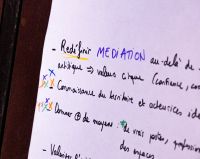 - Redéfinir MEDIATION au-delà de
artistique ⇒ valeurs civique (confiance,
Connaissance du territoire et acteurices
Donner ⊕ de moyens vrais postes, profession
des espaces
- Valoriser